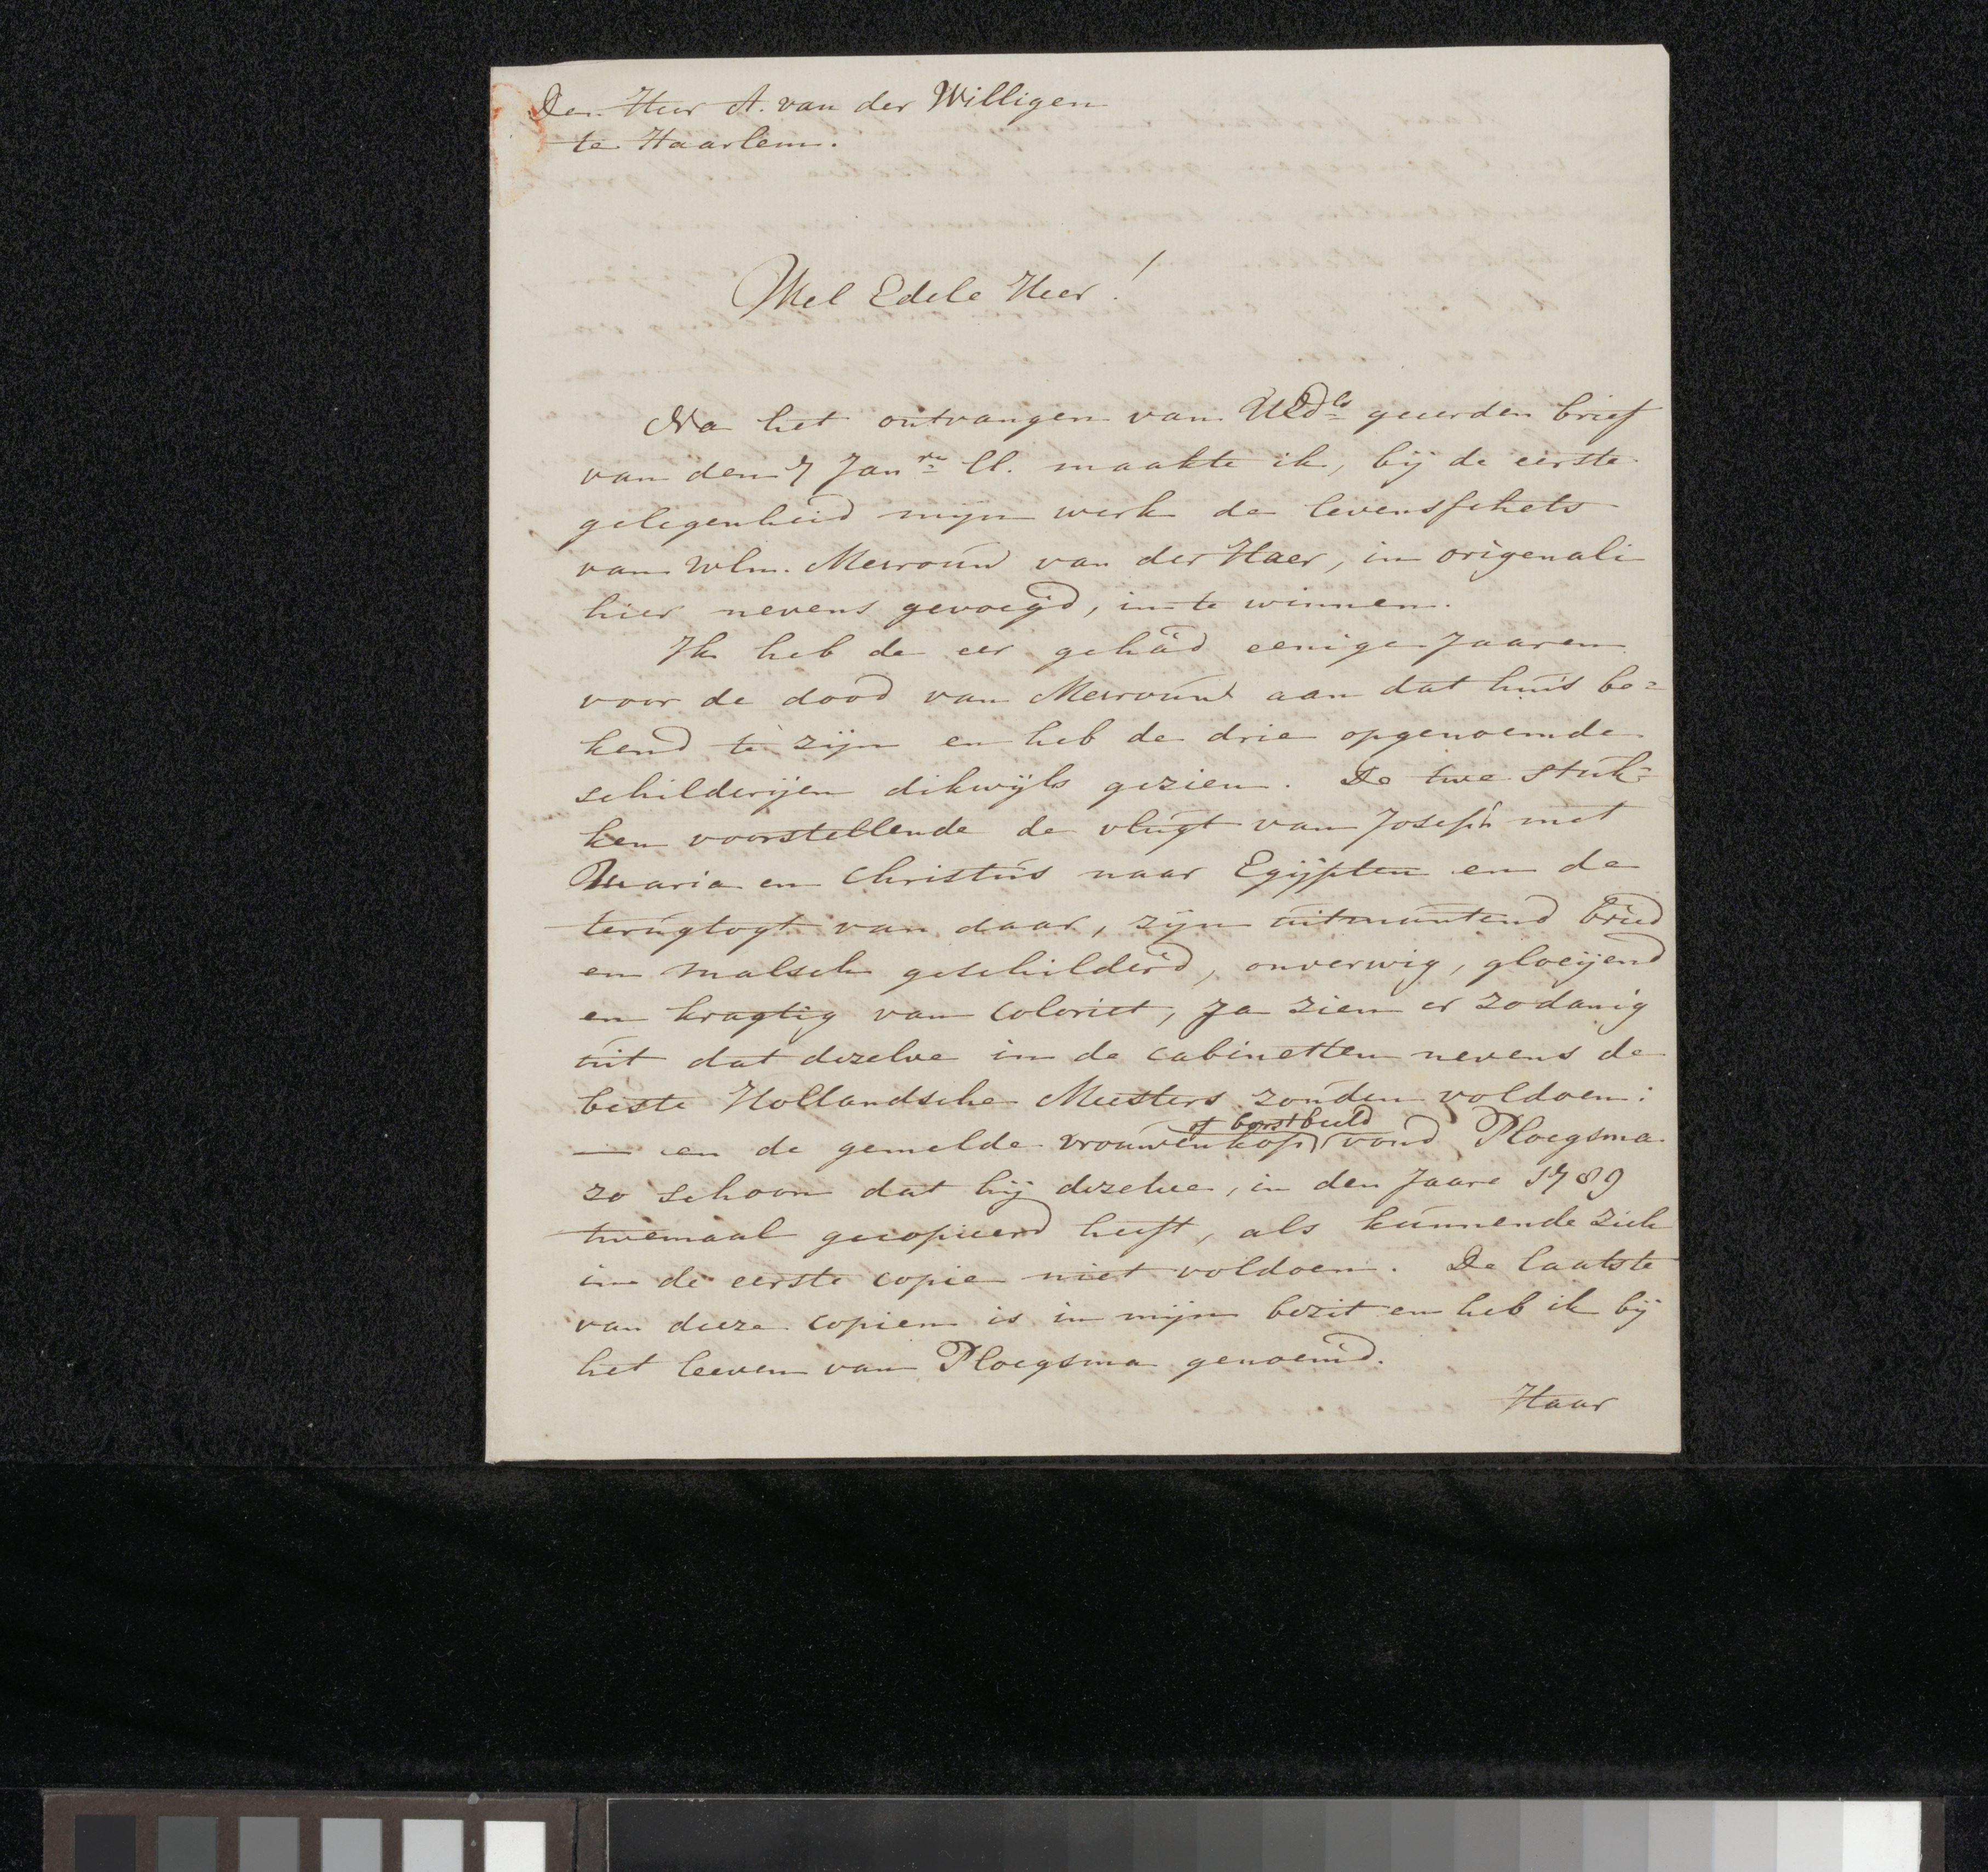 Den Heer A. van der Willigen
te Haarlem.
Wel Edele Heer!
Na het ontvangen van UEd.ls geeerden brief
van den 7 Jan.re ll. maakte ik, bij de eerste
gelegenheid mijn werk de levensschets
van wln. Mevrouw van der Haer, in origenali
hier nevens gevoegd, in te winnen.
Ik heb de eer gehad eenige Jaaren
voor de dood van Mevrouw aan dat huis be=
kend te zijn en heb de drie opgenoemde
schilderijen dikwijls gezien. De twe stuk=
ken voorstellende de vlugt van Joseph met
Maria en Christus naar Egijpten en de
terugtogt van daar, zijn uitmuntend breed
en malsch geschilderd, onverwig, gloeijend
en kragtig van coloriet, ja zien er zodanig
uit dat dezelve in de cabinetten nevens de
beste Hollandsche Meesters zouden voldoen:
— en de gemelde vrouwenkop of borstbeeld vond Ploegsma
zo schoon dat hij dezelve, in den Jaare 1789
twemaal gecopieerd heeft, als kunnende zich
in de eerste copie niet voldoen. De laatste
van deeze copien is in mijn bezit en heb ik bij
het leeven van Ploegsma genoemd.
Haar